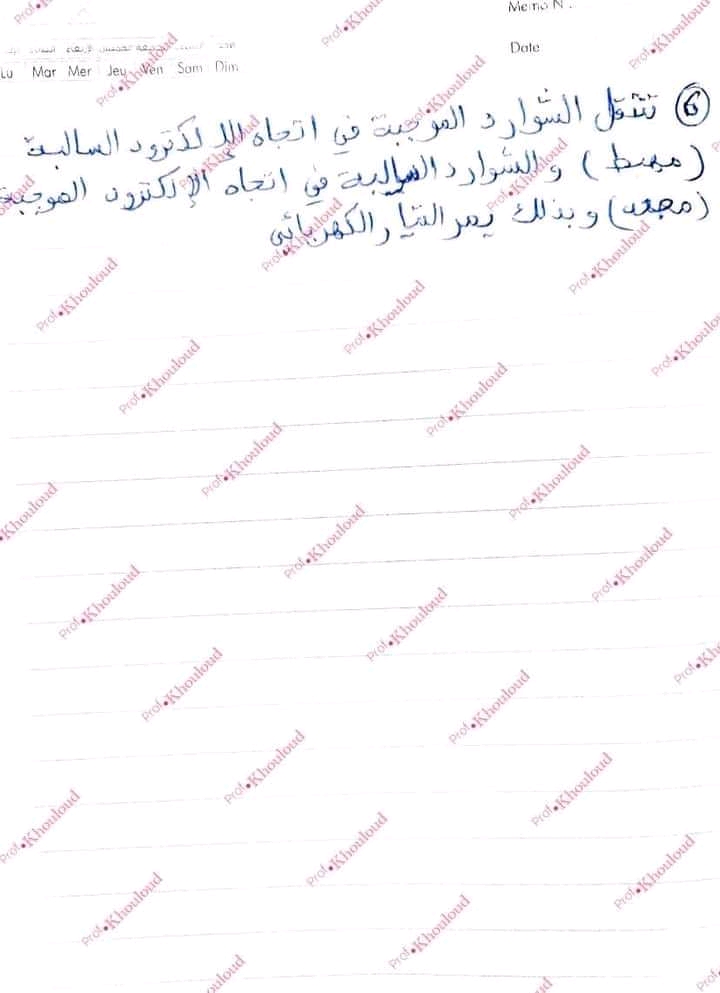 Memo N
Date
Lu Mar Mer Jeu Ven Sam Dim
⑥ تنتقل الشوارد الموجبة في اتجاه الإلكترود السالبة
(مهبط) والشوارد السالبة في اتجاه الإلكترود الموجبة
(مصعد) وبذلك يمر التيار الكهربائي
Prof.Khouloud